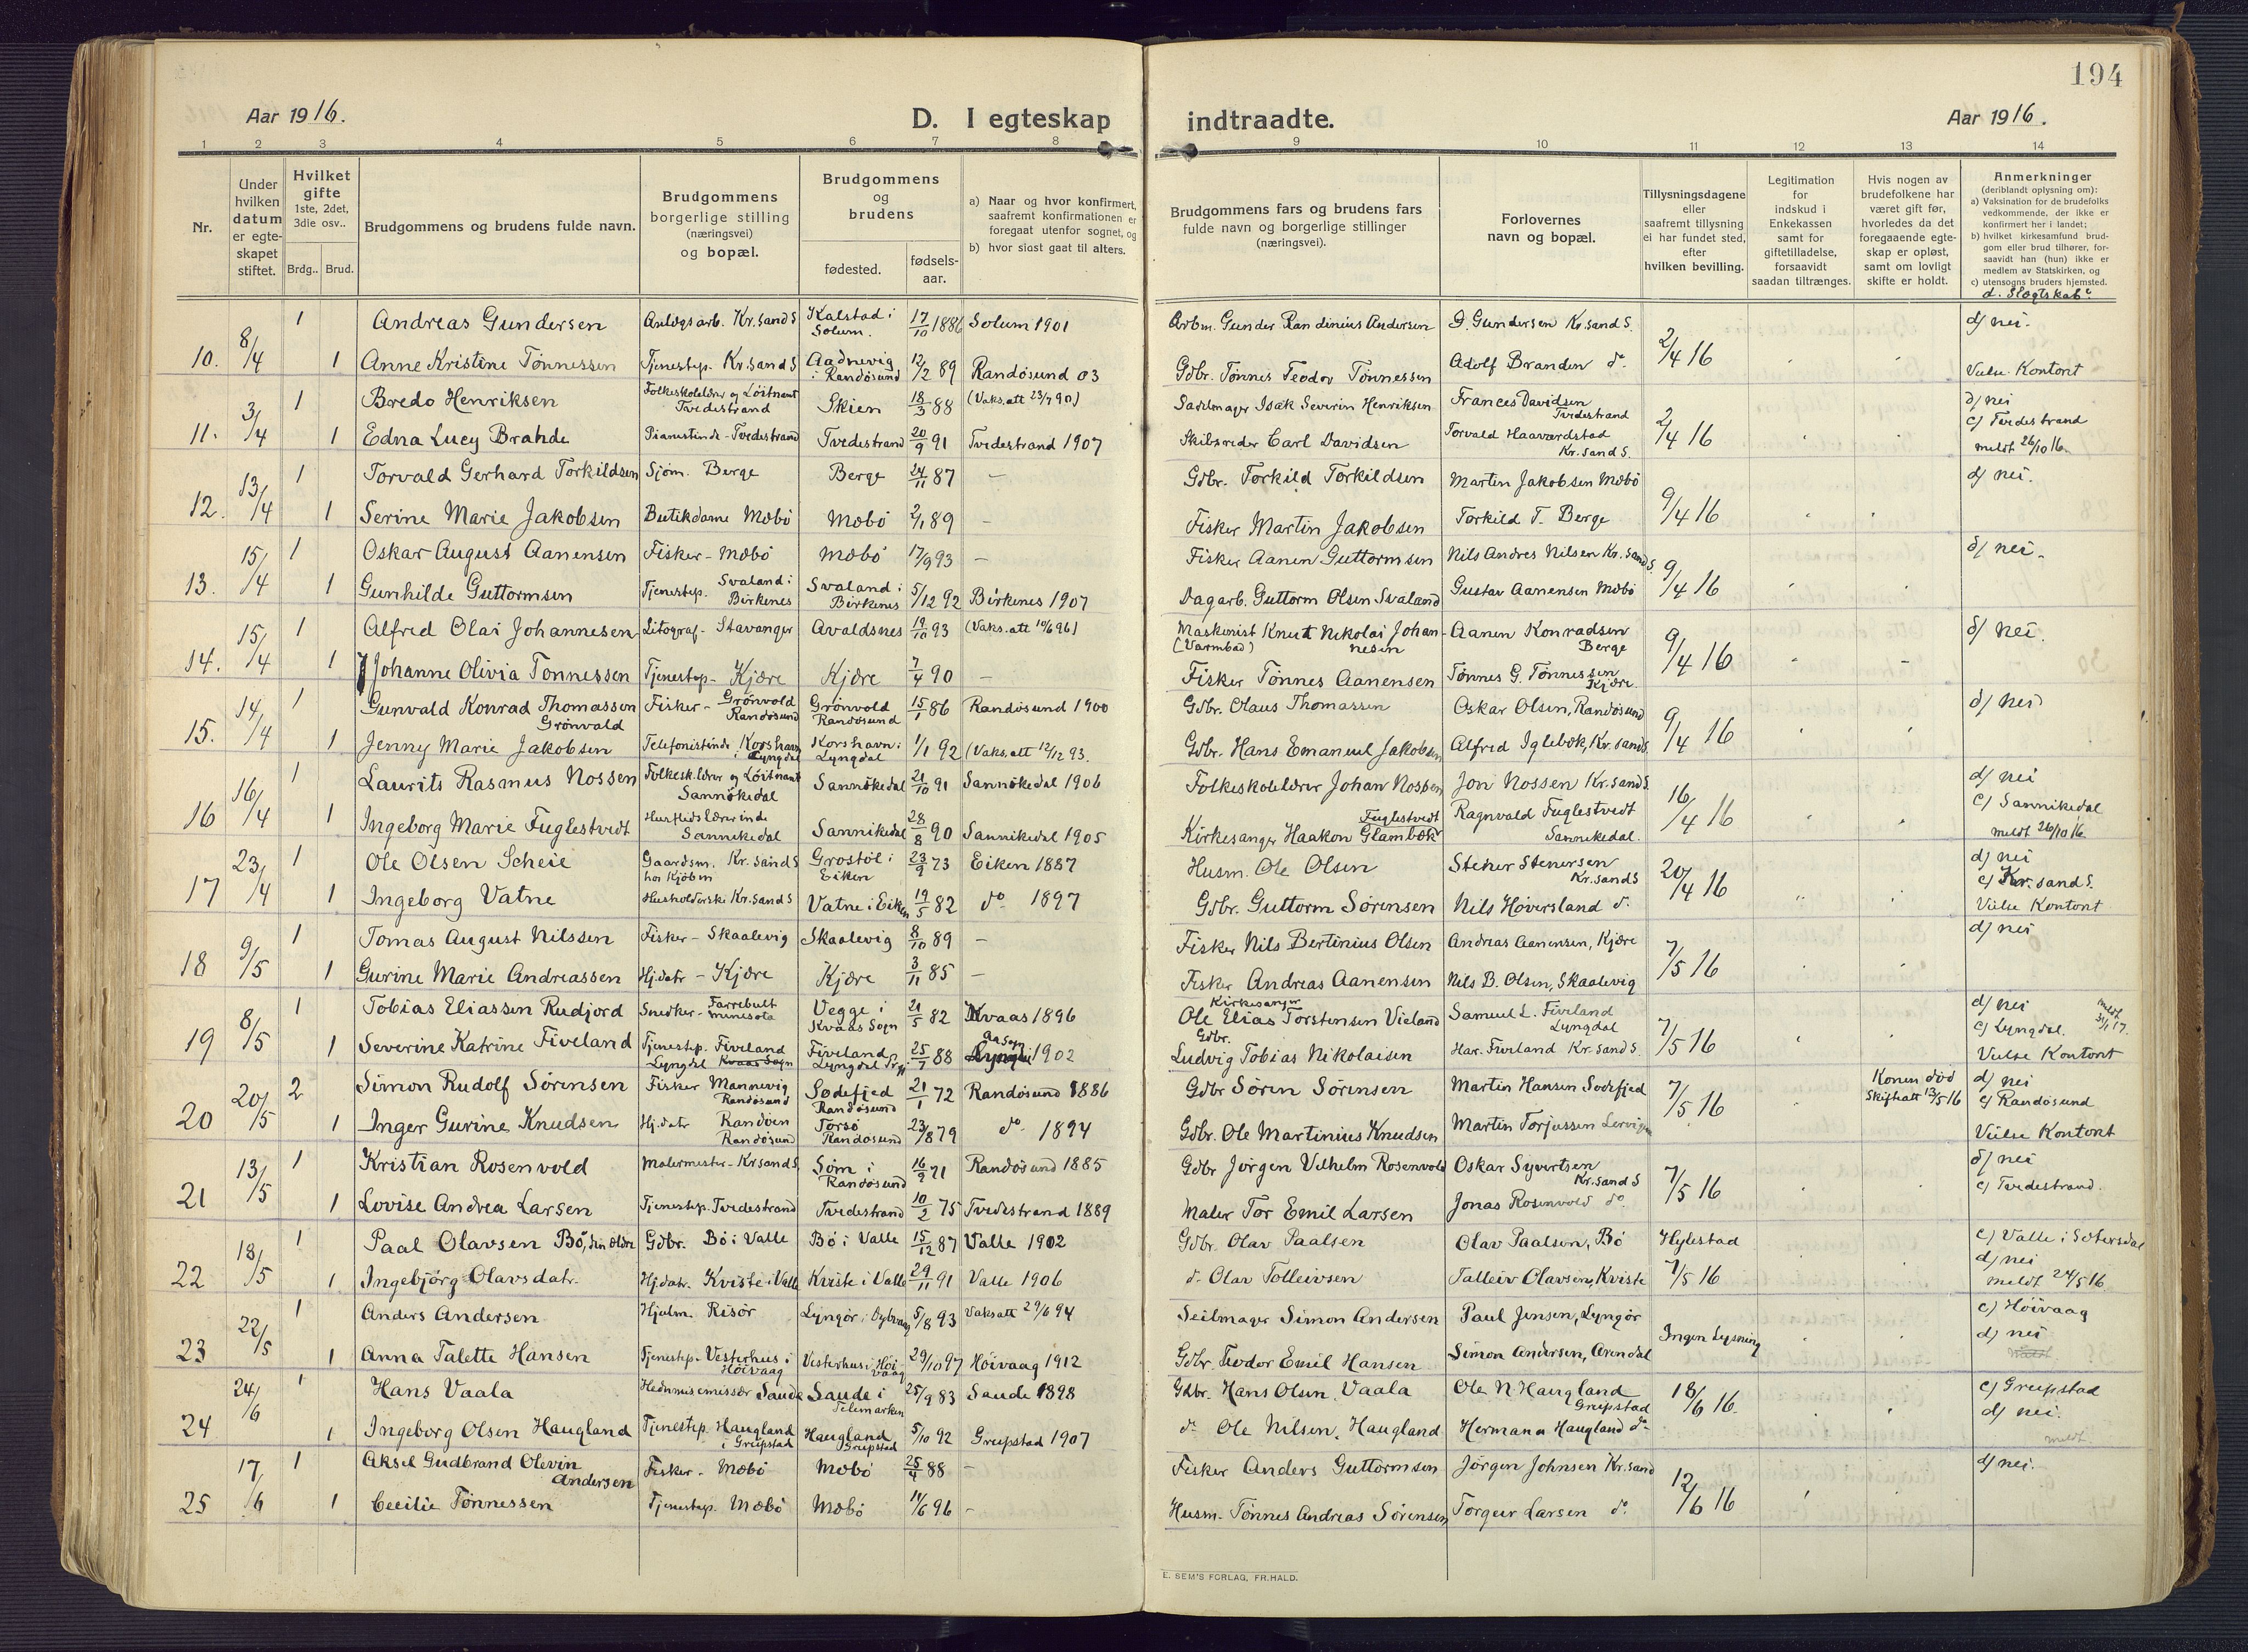 194
Aar 1916.
D. I egteskap indtraadte.
Aar 1916.
1 2 3 4 5 6 7 8 9 10 11 12 13 14
Nr.
Under hvilken datum er egteskapet stiftet.
Hvilket gifte 1ste, 2det, 3die osv..
Brdg.. Brud.
Brudgommens og brudens fulde navn.
Brudgommens borgerlige stilling (næringsvei) og bopæl.
Brudgommens og brudens
fødested.
fødselsaar.
a) Naar og hvor konfirmert, saafremt konfirmationen er foregaat utenfor sognet, og
b) hvor sidst gaat til alters.
Brudgommens fars og brudens fars fulde navn og borgerlige stillinger (næringsvei).
Forlovernes navn og bopæl.
Tillysningsdagene eller saafremt tillysning ei har fundet sted, efter hvilken bevilling.
Legitimation for indskud i Enkekassen samt for giftetilladelse, forsaavidt saadan tiltrænges.
Hvis nogen av brudefolkene har været gift før, hvorledes da det foregaaende egteskap er opløst, samt om lovligt skifte er holdt.
Anmerkninger (deriblandt oplysning om):
a) Vaksination for de brudefolks vedkommende, der ikke er konfirmert her i landet;
b) hvilket kirkesamfund brudgom eller brud tilhører, forsaavidt han (hun) ikke er medlem av Statskirken, og
c) utensogns bruders hjemsted.
d. Slegtskab.
10. 8/4 1 Andreas Gundersen Anlægsarb. Kr.sand S Kalstad i Solum. 17/10 1886 Solum 1901 Arbm. Gunder Randinius Andersen G. Gundersen Kr.sand S. 2/4 16 d/ nei.
1 Anne Kristine Tønnessen Tjenestep. Kr.sand S Aadnevig i Randøsund 12/2 89 Randøsund 03 Gdbr. Tønnes Teodor Tønnessen Adolf Branden do. Vielse Kontort
11. 3/4 1 Bredo Henriksen Folkeskolelærer og Løitnant Tvedestrand Skien 18/3 88 (Vaks.att 23/7 90) Sadelmager Isak Severin Henriksen Frances Davidsen Tvedestrand 2/4 16 d/ nei
1 Edna Lucy Brahde Pianistinde - Tvedestrand Tvedestrand 20/9 91 Tvedestrand 1907 Skibsreder Carl Davidsen Torvald Haaverdstad Kr.sand S. c/ Tvedestrand meldt 26/10 16.
12. 13/4 1 Torvald Gerhard Torkildsen Sjøm. Berge Berge 24/11 87 - Gdbr. Torkild Torkildsen Martin Jakobsen Mæbø 9/4 16 d/ nei.
1 Serine Marie Jakobsen Butikdame Mæbø Mæbø 2/1 89 - Fisker Martin Jakobsen Torkild T. Berge
13. 15/4 1 Oskar August Aanensen Fisker - Mæbø Mæbø 17/9 93 - Fisker Aanen Guttormsen Nils Andres Nilsen Kr.sand S. 9/4 16 d/ nei.
1 Gunhilde Guttormsen Tjenestep. Svaland i Birkenes Svaland i Birkenes 5/12 92 Birkenes 1907 Dagarb. Guttorm Olsen Svaland Gustav Aanensen Mæbø
14. 15/4 1 Alfred Olai Johannesen Litograf - Stavanger Avaldsnes 19/10 93 (Vaks.att 10/6 96) Maskinist (Varmbad) Knut Nikolai Johannesen Aanen Konradsen Berge 9/4 16 d/ nei.
1 Johanne Olivia Tønnessen Tjenestep - Kjære Kjære 7/4 90 - Fisker Tønnes Aanensen Tønnes G. Tønnessen Kjære
15. 14/4 1 Gunvald Konrad Thomassen Grønvald Fisker - Grønvold Randøsund Grønvold Randøsund 15/1 86 Randøsund 1900 Gdbr. Olaus Thomassen Oskar Olsen, Randøsund 9/4 16 d/ nei
1 Jenny Marie Jakobsen Telefonistinde Korshavn i Lyngdal Korshavn i Lyngdal 1/1 92 (Vaks.att 12/12 93. Gdbr. Hans Emanuel Jakobsen Alfred Iglebæk, Kr.sand S.
16 16/4 1 Laurits Rasmus Nossen Folkesk.lærer og Løitnant Sannøkedal Sannøkedal 21/10 91 Sannøkedal 1906 Folkeskolelærer Johan Nossen Jon Nossen Kr.sand S. 16/4 16 d/ nei
1 Ingeborg Marie Fuglestvedt Husflidslærerinde Sannikedal Sannikedal 28/8 90 Sannikedal 1905 Kirkesanger Haakon Glambæk Fuglestvedt Ragnvald Fuglestvedt Sannikedal. c/ Sannikedal meldt 26/10 16
17 23/4 1 Ole Olsen Scheie Gaardsm. Kr.sand S hos Kjøbm Grostøl i Eiken 23/9 73 Eiken 1887 Husm. Ole Olsen Stener Stenersen Kr.sand S 20/4 16 d/ nei
1 Ingeborg Vatne Husholderske Kr.sand S Vatne i Eiken 19/5 82 do 1897 Gdbr. Guttorm Sørensen Nils Høversland do. c/ Kr.sand S. Vielse Kontort
18 9/5 1 Tomas August Nilssen Fisker - Skaalevig Skaalevig 8/10 89 - Fisker Nils Bertinius Olsen Andreas Aanensen, Kjære 7/5 16 d/ nei
1 Gurine Marie Andreassen Hj.datr - Kjære Kjære 3/11 85 - Fisker Andreas Aanensen Nils B. Olsen, Skaalevig
19 8/5 1 Tobias Eliassen Rudjord Snedker - Farrebult Minesota Vegge i Kvaas Sogn 21/5 82 Kvaas 1896 Kirkesanger Ole Elias Torstensen Vieland Samuel L. Fiveland Lyngdal 7/5 16 d/ nei meldt 31/1 17.
1 Severine Katrine Fiveland Tjenestep. Fiveland Lyngdal Kvaas Sogn Fiveland Lyngdal 25/7 88 1902 Gdbr. Ludvig Tobias Nikolaisen Har. Fiveland Kr.sand S. c/ Lyngdal. Vielse Kontort
20 20/5 2 Simon Rudolf Sørensen Fisker Mannevig Randøsund Sødefjed Randøsund 21/1 72 Randøsund 1886 Gdbr Søren Sørensen Martin Hansen Sodefjed 7/5 16 Konen død Skifteatt 13/5 16 d/ nei
1 Inger Gurine Knudsen Hj.datr Randøen Randøsund Torsø Randøsund 23/8 79 do 1894 Gdbr. Ole Martinius Knudsen Martin Torjussen c/ Randøsund Vielse Kontort
21 13/5 1 Kristian Rosenvold Malermester - Kr.sand S Søm i Randøsund 16/9 71 Randøsund 1885 Gdbr Jørgen Vilhelm Rosenvold Oskar Syvertsen Kr.sand S 7/5 16 d/ nei
1 Lovise Andrea Larsen Tjenestep. Tvedestrand Tvedestrand 10/2 75 Tvedestrand 1889 Maler Tor Emil Larsen Jonas Rosenvold do. c/ Tvedestrand.
22 18/5 1 Paal Olavsen Bø, den ældre Gdbr. Bø i Valle Bø i Valle 15/12 87 Valle 1902 Gdbr. Olav Paalsen Olav Paalsen, Bø Hylestad 7/5 16 c/ Valle i Setersdal
1 Ingebjørg Olavsdatr. Hj.datr. Kviste i Valle Kviste i Valle 29/11 91 Valle 1906 do. Olav Tolleivsen Talleiv Olavsen, Kviste d/ nei meldt 24/5 16
23 22/5 1 Anders Andersen Hjulm. Risør Lyngør i 5/8 93 Vaksatt 29/6 94 Seilmager Simon Andersen Paul Jensen, Lyngør Ingen Lysning c/ Høivaag
1 Anna Talette Hansen Tjenestep. Vesterhus i Høivaag Vesterhus i Høivaag 29/10 97 Høivaag 1912 Gdbr. Teodor Emil Hansen Simon Andersen, Arendal d/ nei
24 24/6 1 Hans Vaala Hedmisemissær Saude Saude i Telemarken 25/9 83 Saude 1898 Gdbr. Hans Olsen Vaala Ole N. Haugland Greipstad 18/6 16. c/ Greipstad
1 Ingeborg Olsen Haugland Tjenestep. Haugland i Greipstad Haugland Greipstad 5/10 92 Greipstad 1907 do. Ole Nilsen Haugland Hermann Haugland do d/ nei. meldt.
25 17/6 1 Aksel Gudbrand Olevin Andersen Fisker - Mæbø Mæbø 25/4 88 - Fisker Anders Guttormsen Jørgen Johnsen Kr.sand 12/6 16 d/ nei.
1 Cecilie Tønnessen Tjenestep. Mæbø Mæbø 11/6 96 - Husm. Tønnes Andreas Sørensen Torgeir Larsen do.
E. SEM'S FORLAG, FR.HALD.